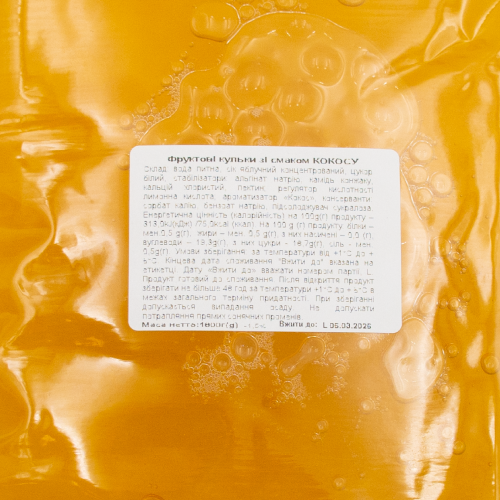 Фруктові кульки зі смаком КОКОСУ
Склад: вода питна, сік яблучний концентрований, цукор
білий, стабілізатори: альгінат натрію, камідь конжаку,
кальцій хлористий, пектин, регулятор кислотності
лимонна кислота, ароматизатор «Кокос», консерванти:
сорбат калію, бензоат натрію, підсолоджувач сукралоза.
Енергетична цінність (калорійність) на 100g(г) продукту –
313,0kJ(кДж) /75,0kcal (ккал). На 100 g (г) продукту: білки –
мен.0,5 g(г), жири – мен. 0,5 g(г), з них насичені – 0,0 (г),
вуглеводи – 19,3g(г), з них цукри – 18,7g(г), сіль - мен.
0,5g(г). Умови зберігання: за температури від +1°С до +
6°С. Кінцева дата споживання "Вжити до" вказана на
етикетці. Дату «Вжити до» вважати номером партії: L.
Продукт готовий до споживання. Після відкриття продукт
зберігати не більше 48 год за температури +1°С до + 6°С в
межах загального терміну придатності. При зберіганні
допускається випадання осаду. Не допускати
потрапляння прямих сонячних променів.
Маса нетто:1800г(g) Вжити до: L 06.03.2026